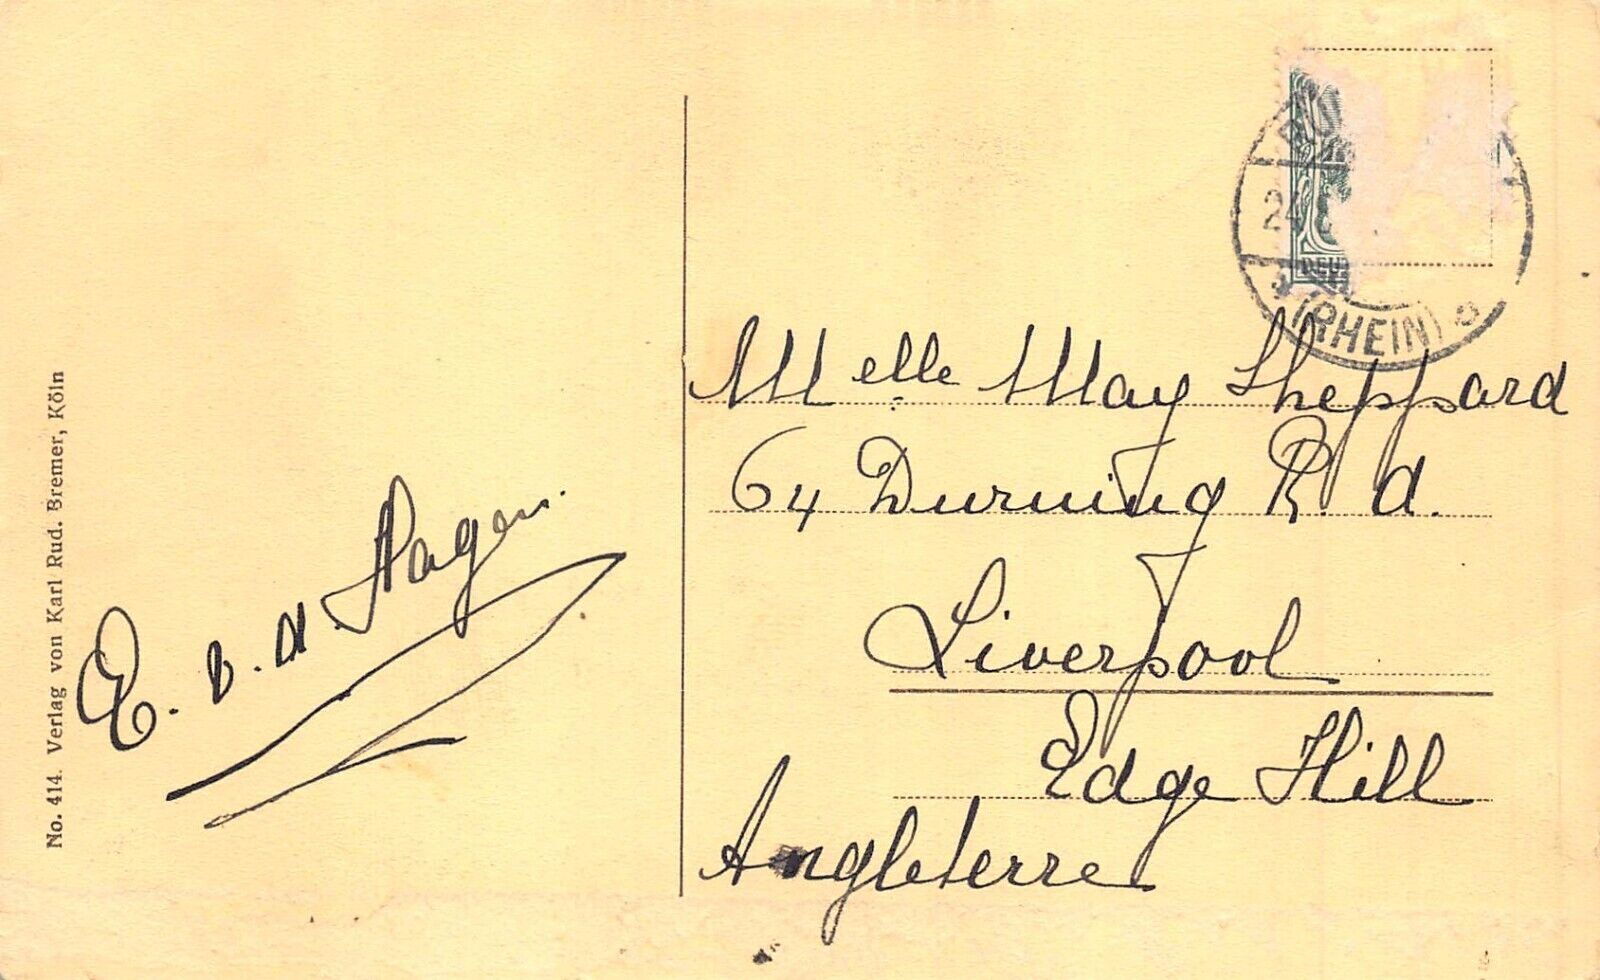 No. 414. Verlag von Karl Rud. Bremer, Köln
E. v. d. Hagen.
(RHEIN)
DEU
24
Melle May Sheppard
64 Durning R. d.
Liverpool
Edge Hill
Angleterre